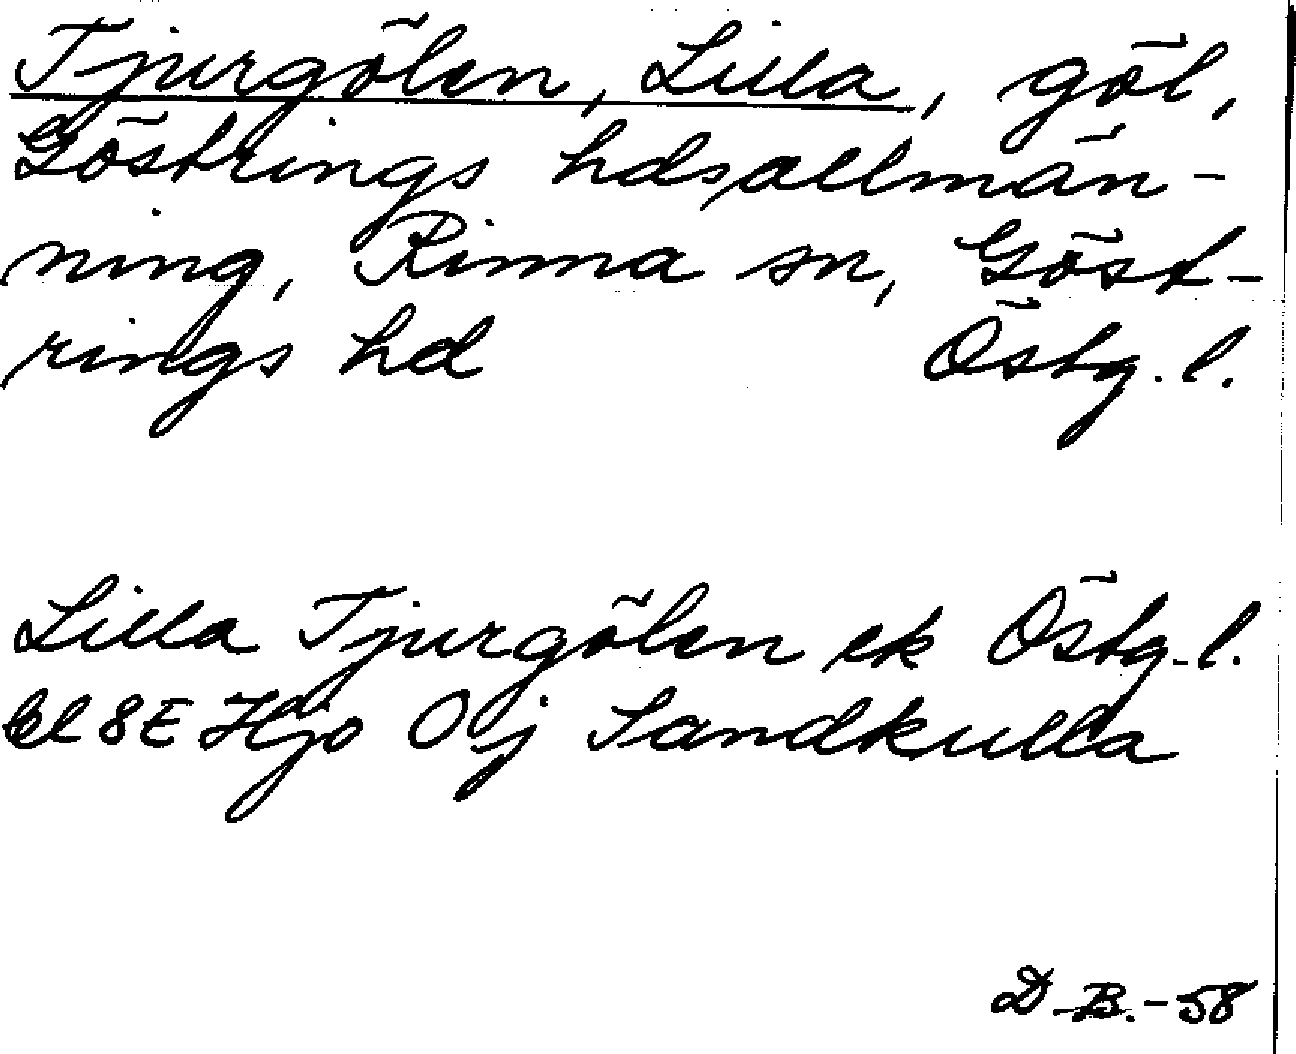 Tjurgölen, Lilla, göl,
Göstrings hdsallmän-
ning, Rinna sn, Göst-
rings hd Östg. l.
Lilla Tjurgölen ek Östg. l.
bl 8E Hjo 0j Sandkulla
D.B. -58